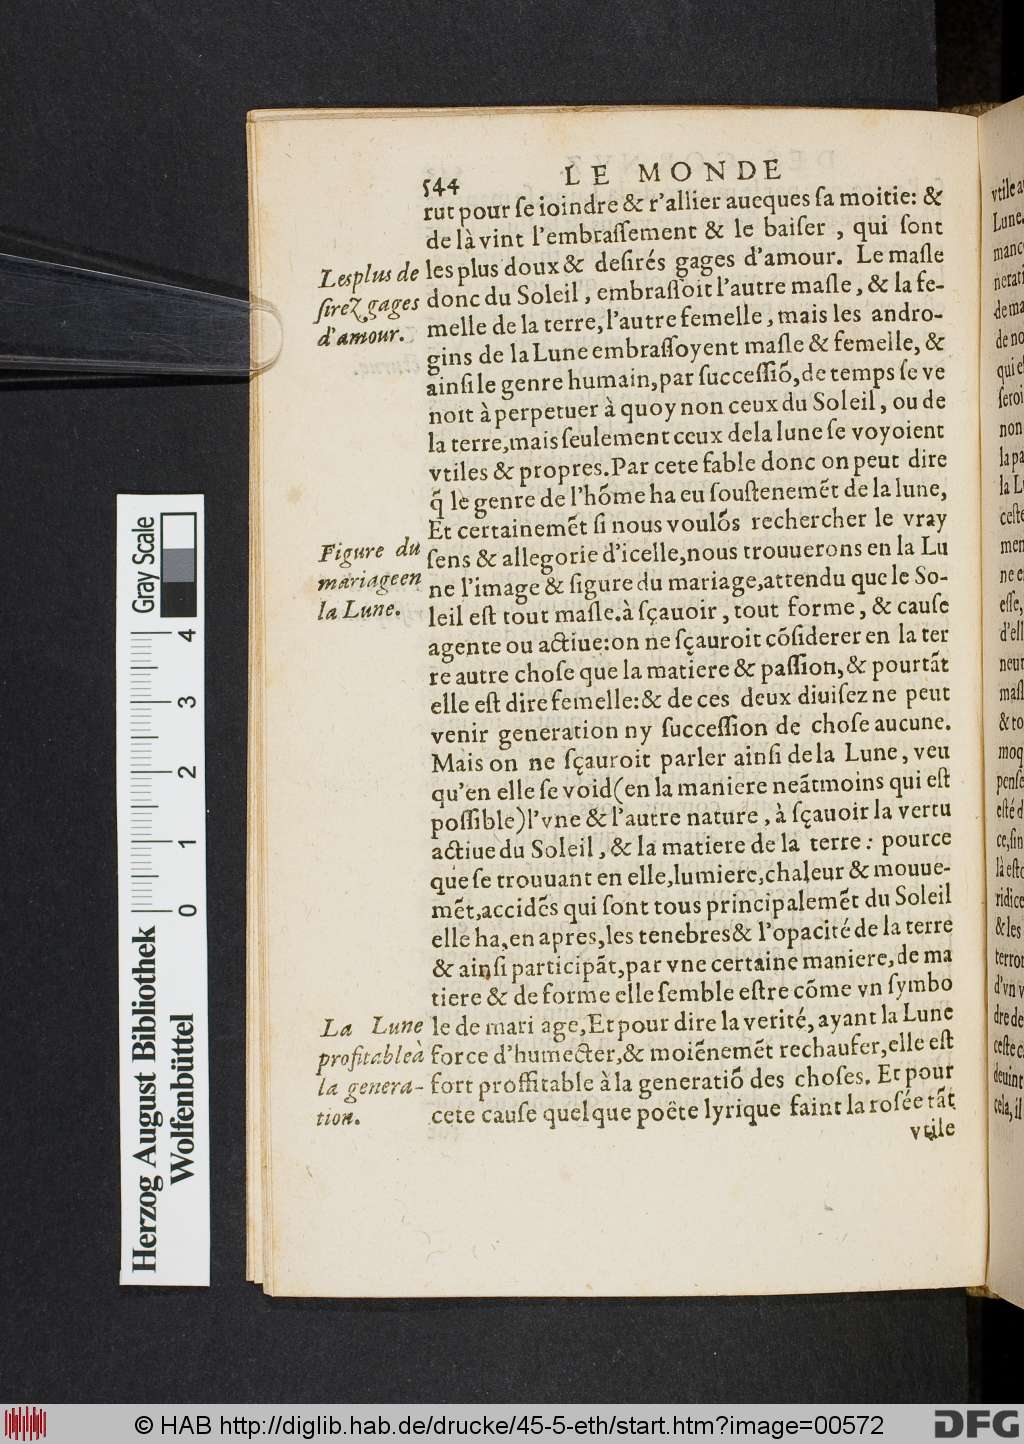 544
LE MONDE
rut pour ſe ioindre & r'allier auecques ſa moitie: &
de là vint l'embraſſement & le baiſer , qui ſont
les plus doux & deſirés gages d'amour. Le maſle
donc du Soleil , embraſſoit l'autre maſle , & la fe-
melle de la terre, l'autre femelle , mais les andro-
gins de la Lune embraſſoyent maſle & femelle, &
ainſi le genre humain, par ſucceſſiõ, de temps ſe ve
noit à perpetuer à quoy non ceux du Soleil , ou de
la terre, mais ſeulement ceux dela lune ſe voyoient
vtiles & propres. Par cete fable donc on peut dire
q̃ le genre de l'hõme ha eu ſouſtenemẽt de la lune,
Et certainemẽt ſi nous voulõs rechercher le vray
ſens & allegorie d'icelle, nous trouuerons en la Lu
ne l'image & figure du mariage, attendu que le So-
leil eſt tout maſle. à ſçauoir , tout forme , & cauſe
agente ou actiue: on ne ſçauroit cõſiderer en la ter
re autre choſe que la matiere & paſſion, & pourtãt
elle eſt dire femelle: & de ces deux diuiſez ne peut
venir generation ny ſucceſſion de choſe aucune.
Mais on ne ſçauroit parler ainſi dela Lune , veu
qu'en elle ſe void (en la maniere neãtmoins qui eſt
poſſible) l'vne & l'autre nature , à ſçauoir la vertu
actiue du Soleil , & la matiere de la terre : pource
que ſe trouuant en elle, lumiere, chaleur & mouue-
mẽt, accidẽs qui ſont tous principalemẽt du Soleil
elle ha, en apres, les tenebres & l'opacité de la terre
& ainſi participãt, par vne certaine maniere, de ma
tiere & de forme elle ſemble eſtre cõme vn ſymbo
le de mari age, Et pour dire la verité, ayant la Lune
force d'humecter, & moiẽnemẽt rechaufer, elle eſt
fort proffitable à la generatiõ des choſes. Et pour
cete cauſe quelque poête lyrique faint la roſée tãt
vtile
Les plus de
ſirez gages
d'amour.
Figure du
mariage en
la Lune.
La Lune
profitable à
la genera-
tion.
Gray Scale
0 1 2 3 4
Herzog August Bibliothek
Wolfenbüttel
© HAB http://diglib.hab.de/drucke/45-5-eth/start.htm?image=00572
DFG